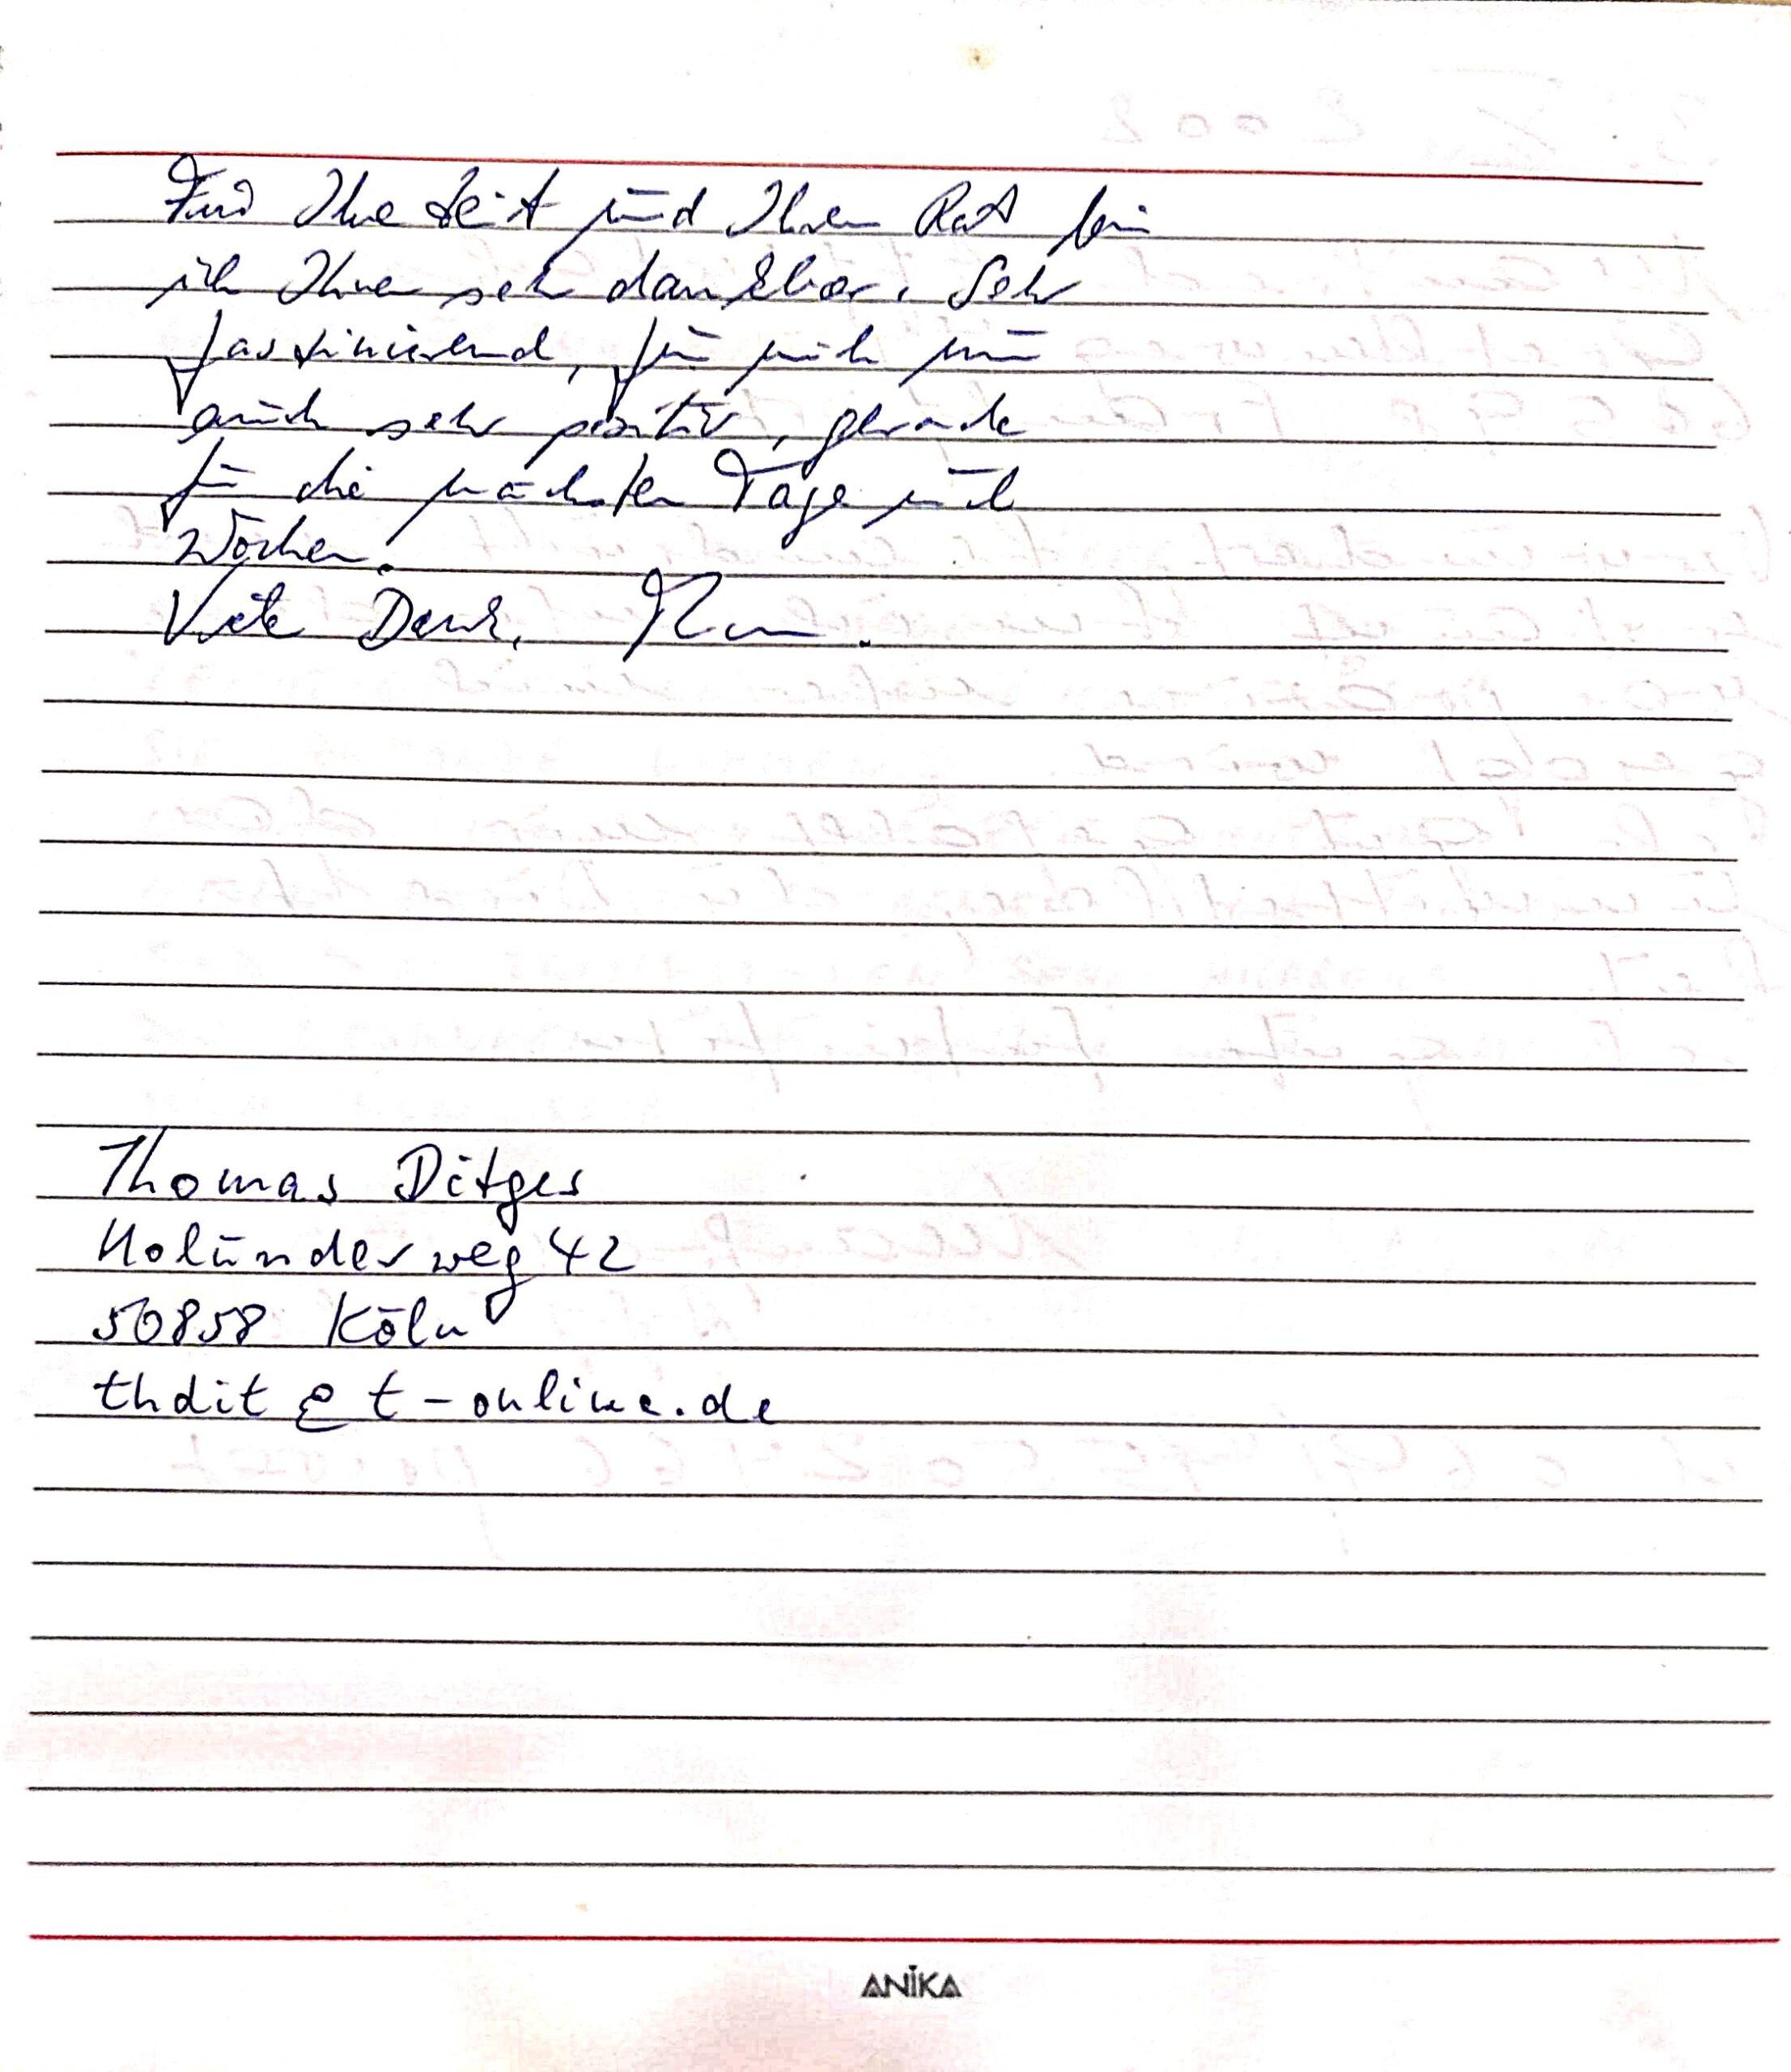 Für Ihre Zeit und Ihren Rat bin
ich Ihnen sehr dankbar. Sehr
faszinierend, für mich nun
auch sehr positiv, gerade
für die nächsten Tage und
Wochen.
Viele Dank.
Thomas Ditges
Holunderweg 42
50858 Köln
thdit@t-online.de
ANIKA